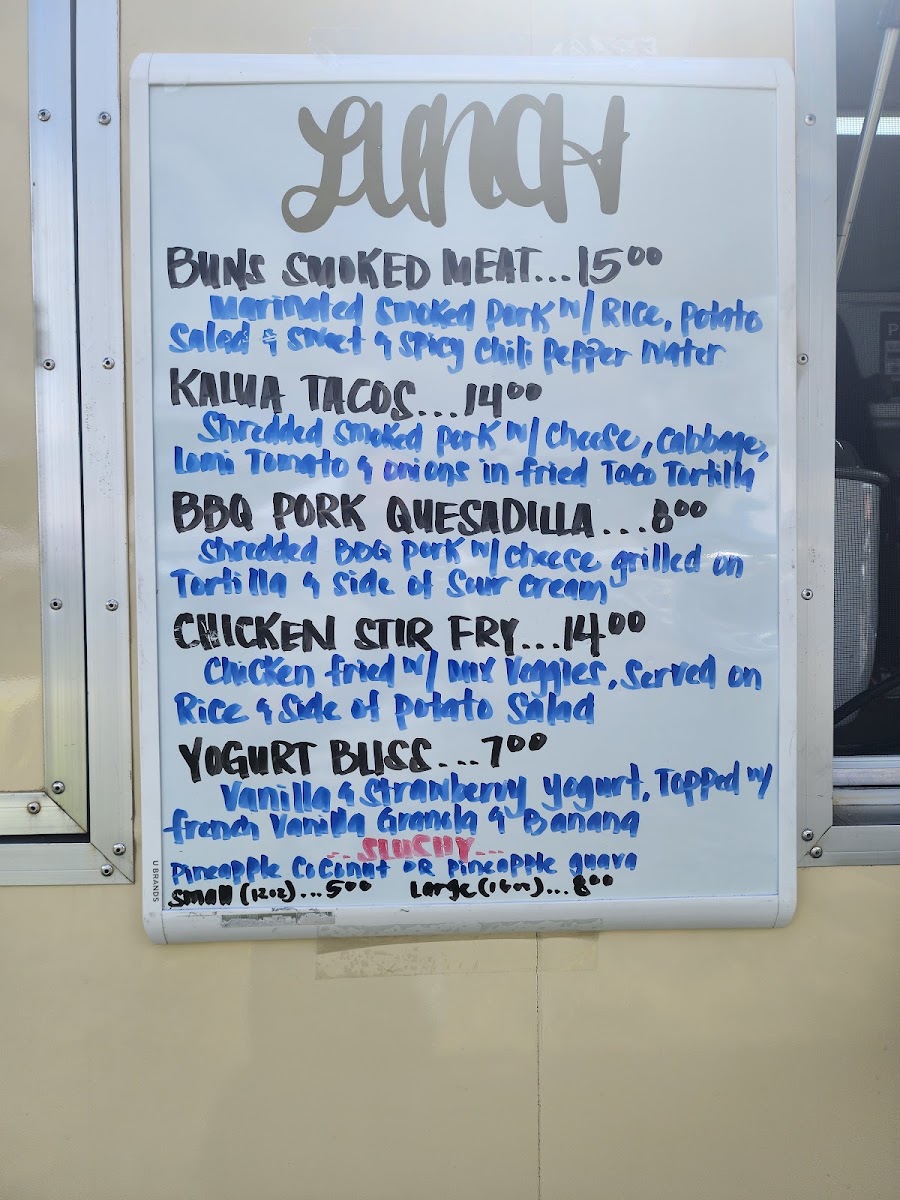 Lunch
BUNS SMOKED MEAT...15⁰⁰
Marinated Smoked Pork w/ Rice, Potato
Salad & Sweet & Spicy Chili Pepper Water
KALUA TACOS...14⁰⁰
Shredded Smoked Pork w/ Cheese, Cabbage,
Lomi Tomato & onions in fried Taco Tortilla
BBQ PORK QUESADILLA...8⁰⁰
Shredded BBQ Pork w/ Cheese grilled on
Tortilla & side of Sour Cream
CHICKEN STIR FRY...14⁰⁰
Chicken fried w/ mix Veggies, Served on
Rice & Side of Potato Salad
YOGURT BLISS...7⁰⁰
Vanilla & Strawberry Yogurt, Topped w/
french Vanilla Granola & Banana
...SLUCHY...
Pineapple Coconut OR Pineapple guava
Small (12oz)...5⁰⁰ Large (16oz)...8⁰⁰
U BRANDS